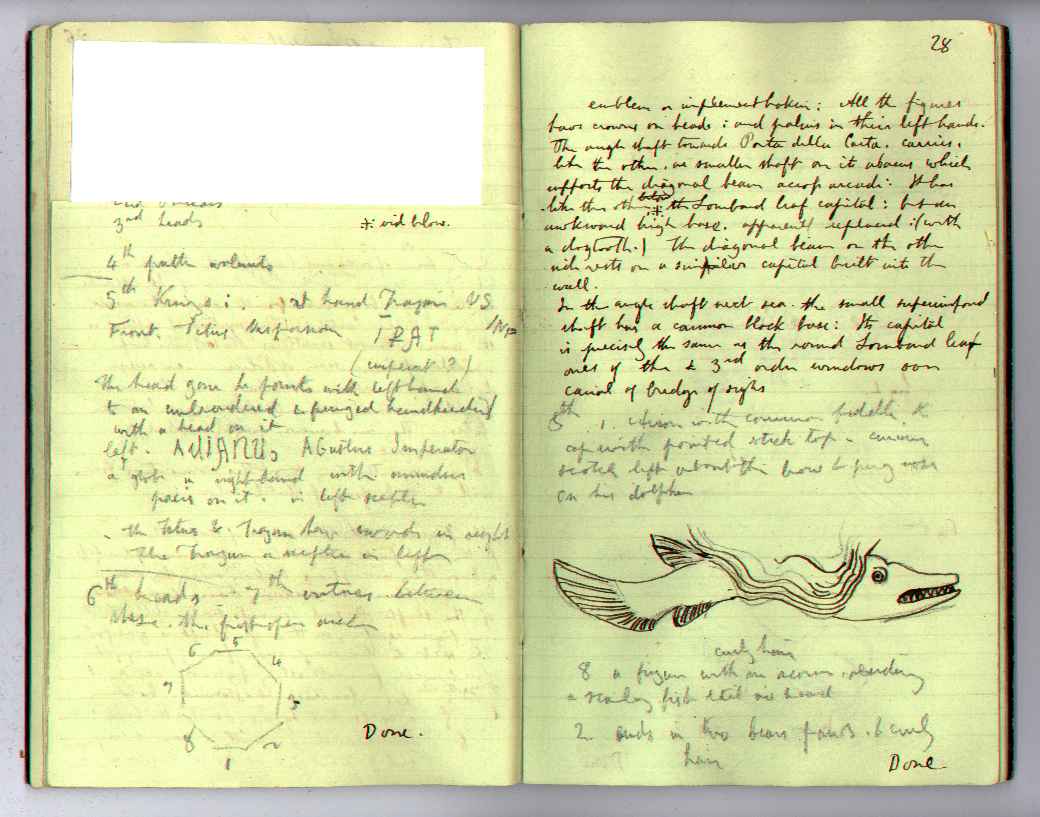 3rd heads
* vid below.
4th putti
5th Kings: at hand Trajan VS
Front. Titus Vespasian IPAT
(imperat!?)
The head gone he points with left hand
to an embroidered & fringed handkerchief
with a head on it
left. AUIANUS AGustus Imperator
a globe in right hand with
on it. in left scepter
the Titus & Trajan have swords in right
The Trajan a scepter in left
6th heads 7th virtues between
these. the first open
6 5 4
7 3
8 2
1
Done.
28
emblem or implement broken: All the figures
have crowns on heads: and palms in their left hands.
The angle shaft towards Porta della Carta. carries,
like the other, a smaller shaft on its abacus which
supports the diagonal beam across arcade: It has
like the other below * the Lombard leaf capital: but an
awkward high base, apparently replaced: (with
a dogtooth.) The diagonal beam on the other
side rests on a similar capital built into the
wall.
In the angle shaft next sea. the small superimposed
shaft has a common block base: Its capital
is precisely the same as the round Lombard leaf
ones of the 2 & 3rd order windows over
canal of bridge of sighs
8th 1. Arion with common fiddle, &
cap with pointed top
left about the bow & peg
on his dolphin
curly hair
8 a figure with an
a fish head
2. ends in two bears paws. & curly
hair
Done